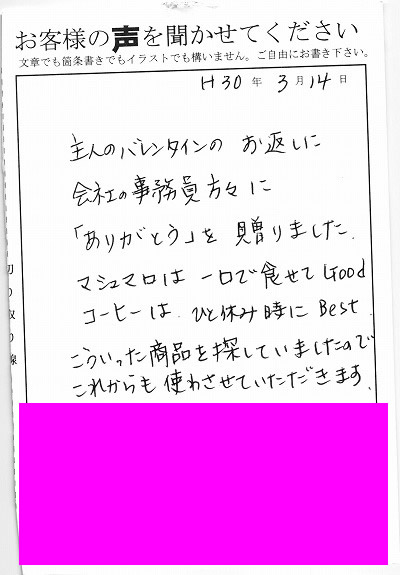 お客様の声を聞かせてください
文章でも箇条書きでもイラストでも構いません。ご自由にお書き下さい。
H30年 3月14日
主人のバレンタインの お返しに
会社の事務員方々に
「ありがとう」を 贈りました.
マシュマロは 一口で食せて Good
コーヒーは. ひと休み時に Best.
こういった商品を探していましたので
これからも 使わさせていただきます.
切り取り線